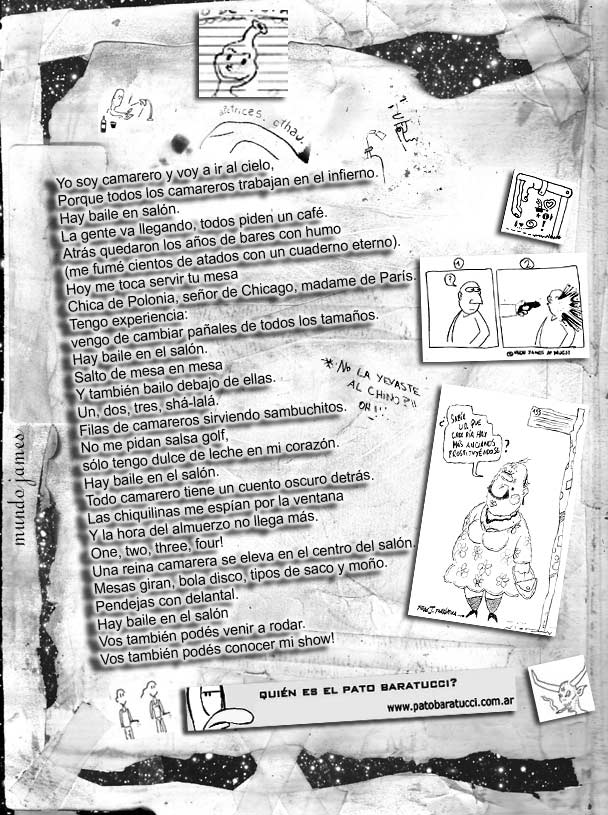 actrices, othau.
Yo soy camarero y voy a ir al cielo,
Porque todos los camareros trabajan en el infierno.
Hay baile en salón.
La gente va llegando, todos piden un café.
Atrás quedaron los años de bares con humo
(me fumé cientos de atados con un cuaderno eterno).
Hoy me toca servir tu mesa
Chica de Polonia, señor de Chicago, madame de París.
Tengo experiencia:
vengo de cambiar pañales de todos los tamaños.
Hay baile en el salón.
Salto de mesa en mesa
Y también bailo debajo de ellas.
Un, dos, tres, shá-lalá.
Filas de camareros sirviendo sambuchitos.
No me pidan salsa golf,
sólo tengo dulce de leche en mi corazón.
Hay baile en el salón.
Todo camarero tiene un cuento oscuro detrás.
Las chiquilinas me espían por la ventana
Y la hora del almuerzo no llega más.
One, two, three, four!
Una reina camarera se eleva en el centro del salón.
Mesas giran, bola disco, tipos de saco y moño.
Pendejas con delantal.
Hay baile en el salón
Vos también podés venir a rodar.
Vos también podés conocer mi show!
1
2
?
* NO LA YEVASTE
AL CHINO?!!
OH!!
SABÍA
UD. QUE
CADA DÍA HAY
MÁS ANCIANOS
PROSTITUYÉNDOSE?
mundo james
QUIÉN ES EL PATO BARATUCCI?
www.patobaratucci.com.ar